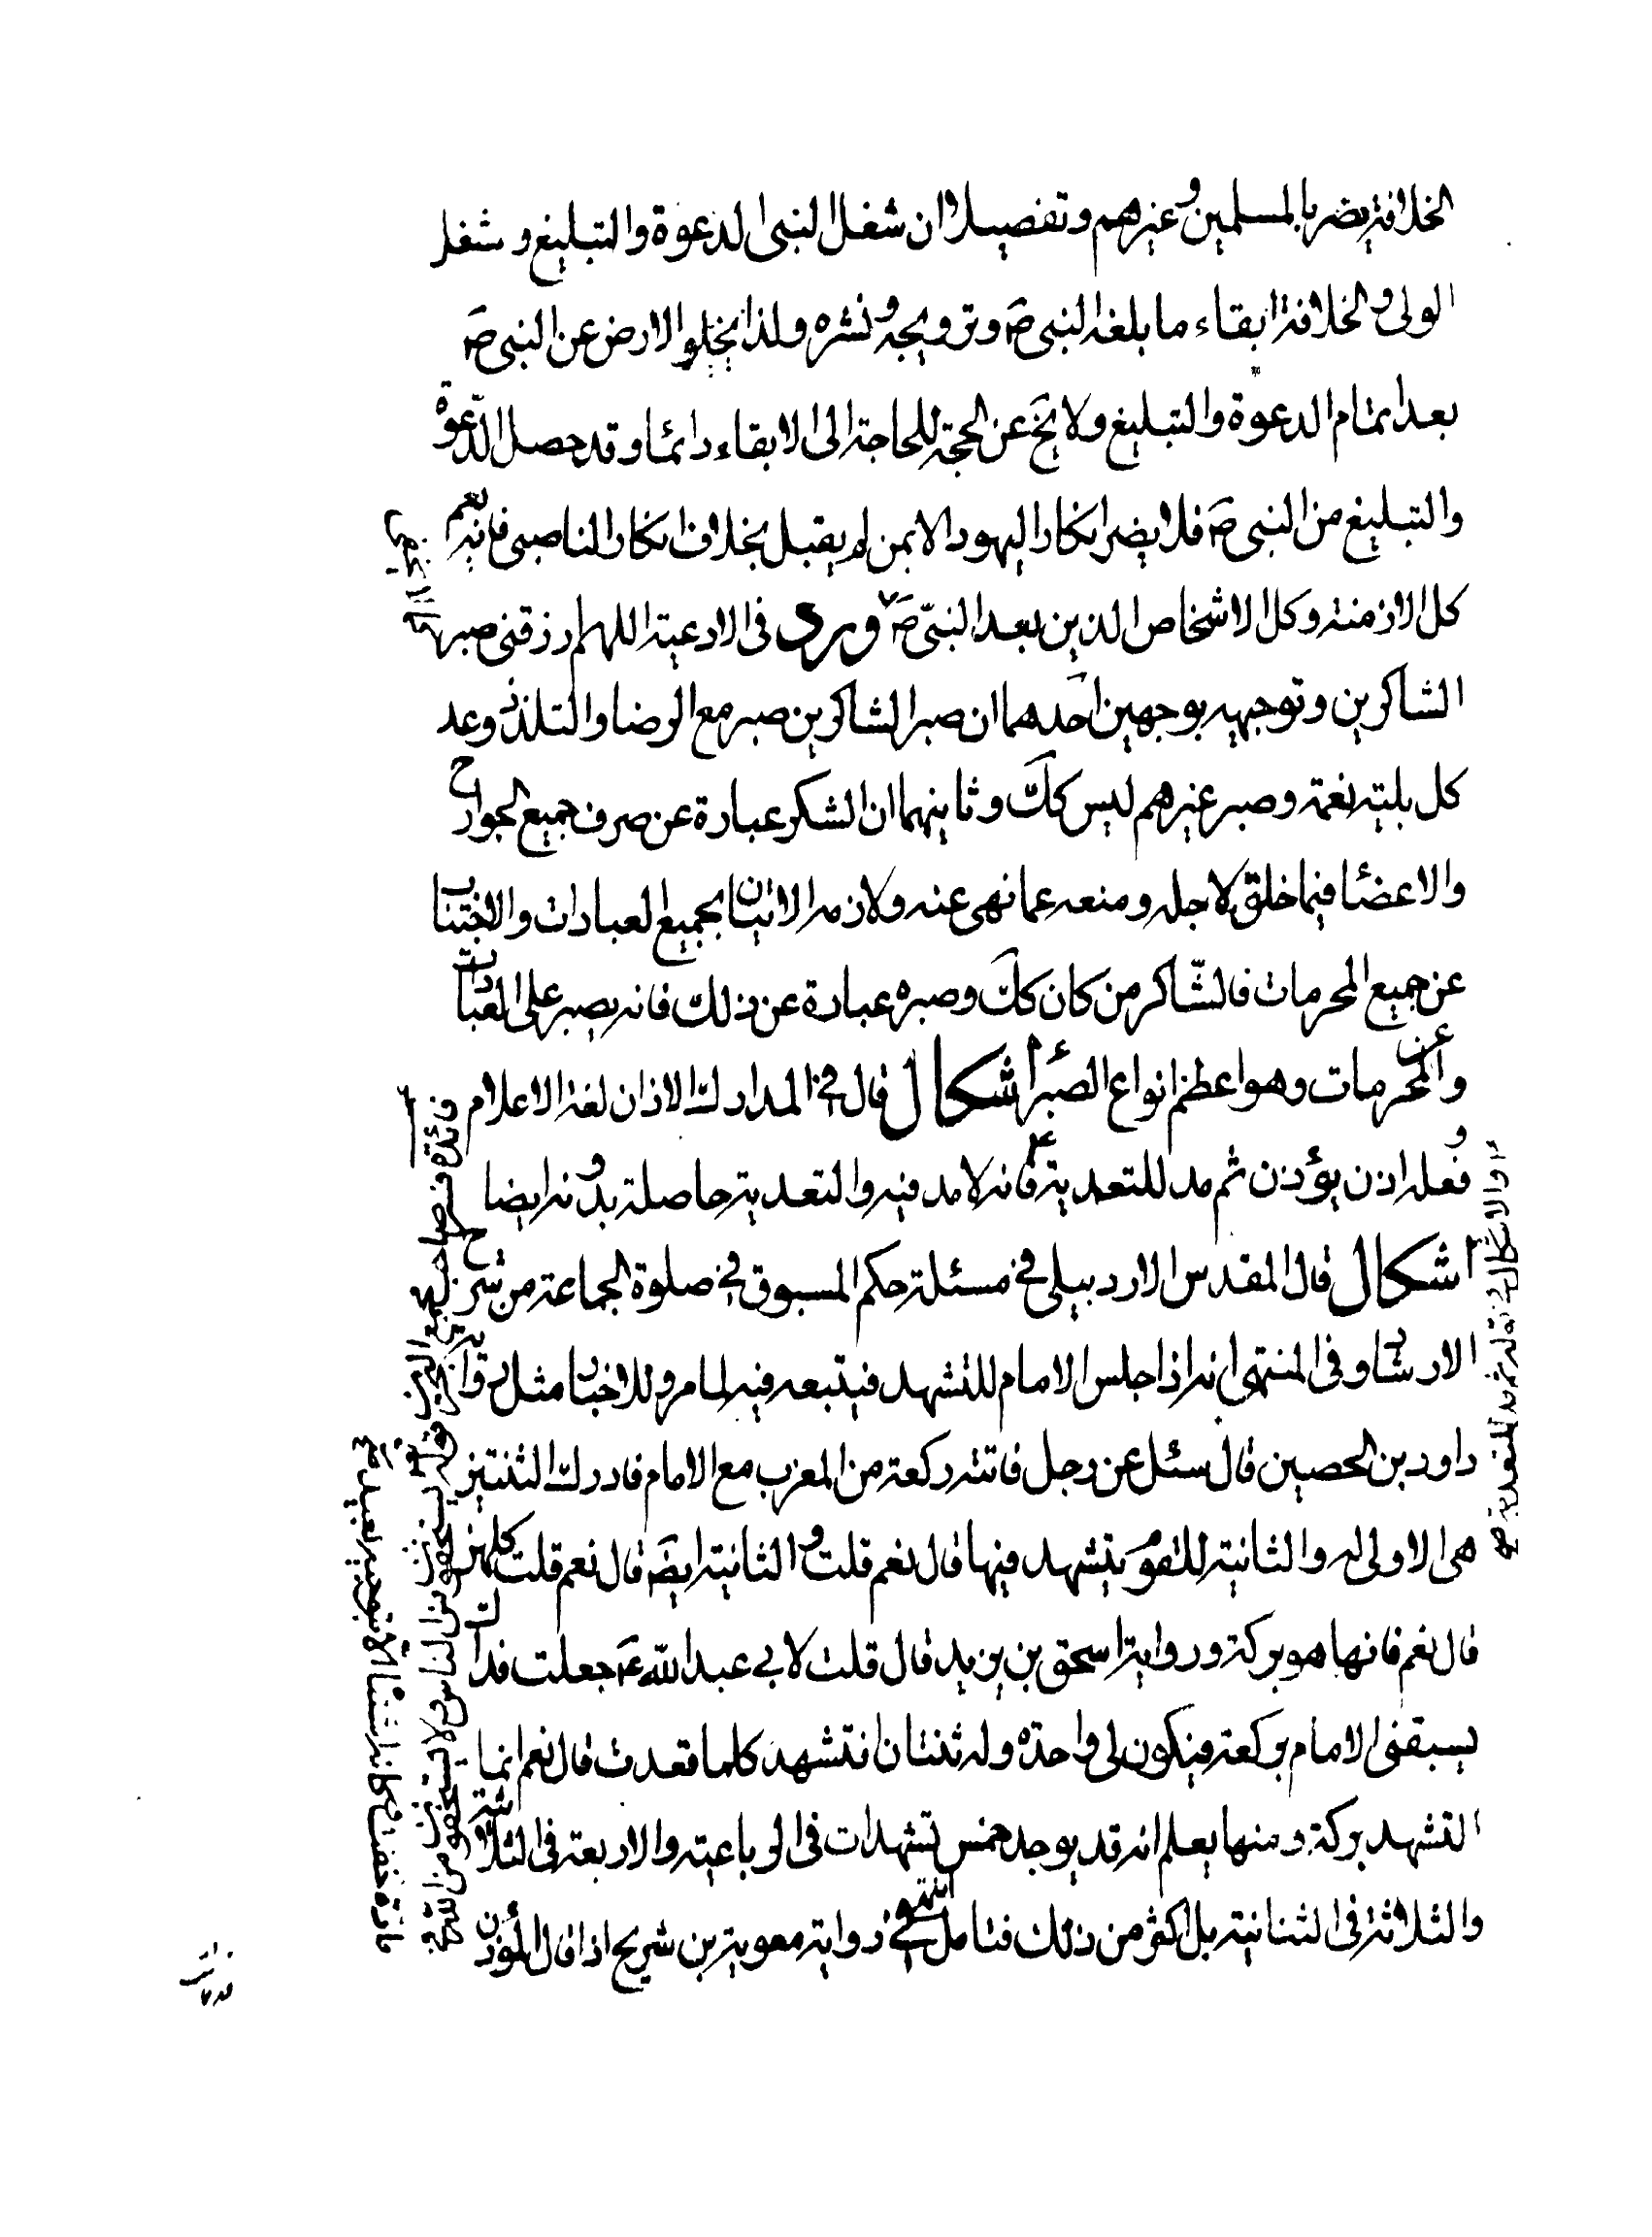 الخلافة يضر بالمسلمين وغيرهم وتفصيلا ان شغل النبى الدعوة والتبليغ وشغل
الولى والخلافة ابقاء ما بلغه النبى ص وترويجه ونشره ولذا يخلو الارض عن النبى ص
بعد اتمام الدعوة والتبليغ ولا يخ عن الحجة للحاجة الى الابقاء دائما وقد حصل الدعوة
والتبليغ من النبى ص فلا يضر انكار اليهود الا بمن لم يقبل بخلاف انكار الناصبى فانه يعم
كل الازمنة وكل الاشخاص الذين بعد النبىّ ص وروى فى الادعية اللهم ارزقنى صبر
الشاكرين وتوجيهه بوجهين احدهما ان صبر الشاكرين صبر مع الرضا والتلذذ وعد
كل بلية نعمة وصبر غيرهم ليس كك وثانيهما ان الشكر عبارة عن صرف جميع الجوارح
والاعضا فيما خلق لاجله ومنعه عما نهى عنه ولازمه الاتيان بجميع العبادات والاجتناب
عن جميع المحرمات فالشّاكر من كان كك وصبره عبارة عن ذلك فانه يصبر على العبادات
وعن المحرمات وهو اعظم انواع الصبر اشكال قال فى المدارك الاذان لغة الاعلام
وفعله اذن يؤذن ثم مد للتعدية فانه لا مد فيه والتعدية حاصلة بدونه ايضا
اشكال قال المقدس الاردبيلى فى مسئلة حكم المسبوق فى صلوة الجماعة من شرح
الارشاد وفى المنتهى انه اذا جلس الامام للتشهد فيتبعه فيه لما مر وللاخبار مثل رواية
داود بن الحصين قال سئل عن رجل فاتته ركعة من المغرب مع الامام فادرك الثنتين
هى الاولى له والثانية للقوم يتشهد فيها قال نعم قلت والثانية ايضَ قال نعم قلت كلهن
قال نعم فانها هو بركة ورواية اسحق بن يزيد قال قلت لابي عبد الله ع جعلت فداك
يسبقنى الامام بركعة فيكون لى واحدة وله ثنتان انتشهد كلما قعدت قال نعم انما
التشهد بركة ومنها يعلم انه قد يوجد خمس تشهدات فى الرباعية والاربعة فى الثلاثية
والثلاثة فى الثنائية بل اكثر من ذلك فتامل انتهى فى رواية معوية بن شريح اذا قال المؤذن
والاشكال فى قوله ثم مد للتعدية
فائدة
قوله يستخفون من الناس ولا يستخفون من الله